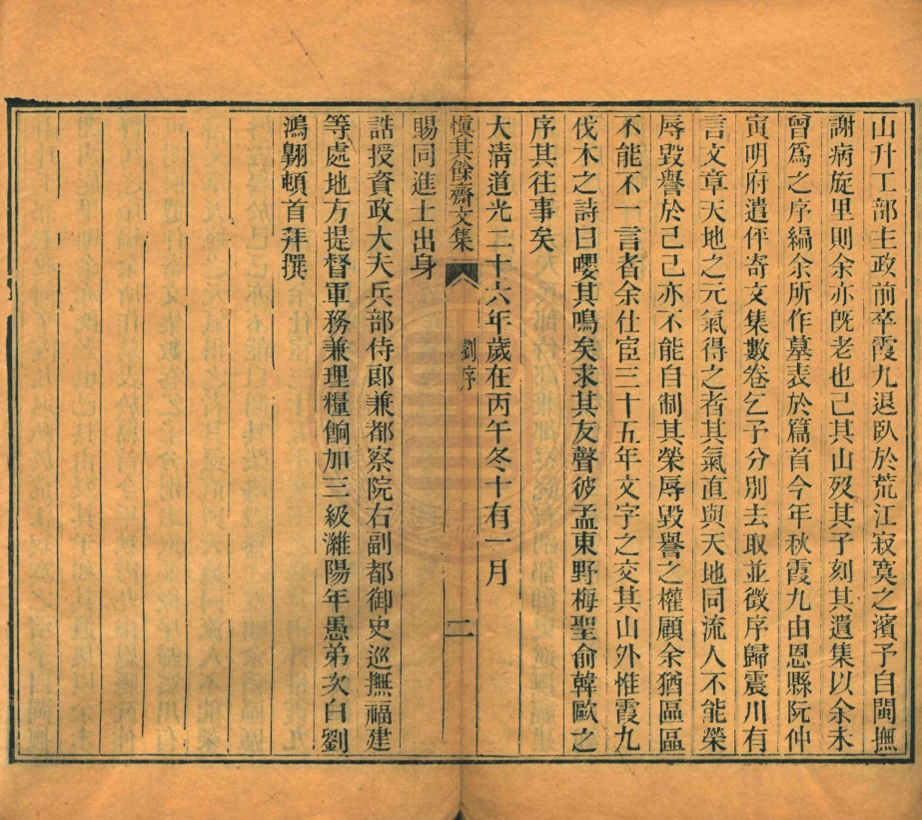 山升工部主政前卒霞九退臥於荒江寂寞之濱予自閩撫
謝病旋里則余亦旣老也己其山歿其子刻其遺集以余未
曾爲之序編余所作墓表於篇首今年秋霞九由恩縣阮仲
寅明府遣伻寄文集數卷乞予分別去取並徵序歸震川有
言文章天地之元氣得之者其氣直與天地同流人不能榮
辱毀譽於己己亦不能自制其榮辱毀譽之權顧余猶區區
不能不一言者余仕宦三十五年文字之交其山外惟霞九
伐木之詩曰嚶其鳴矣求其友聲彼孟東野梅聖俞韓歐之
序其往事矣
大淸道光二十六年歲在丙午冬十有一月
慎其餘齋文集
劉序
二
賜同進士出身
誥授資政大夫兵部侍郞兼都察院右副都御史巡撫福建
等處地方提督軍務兼理糧餉加三級濰陽年愚弟次白劉
鴻翺頓首拜撰